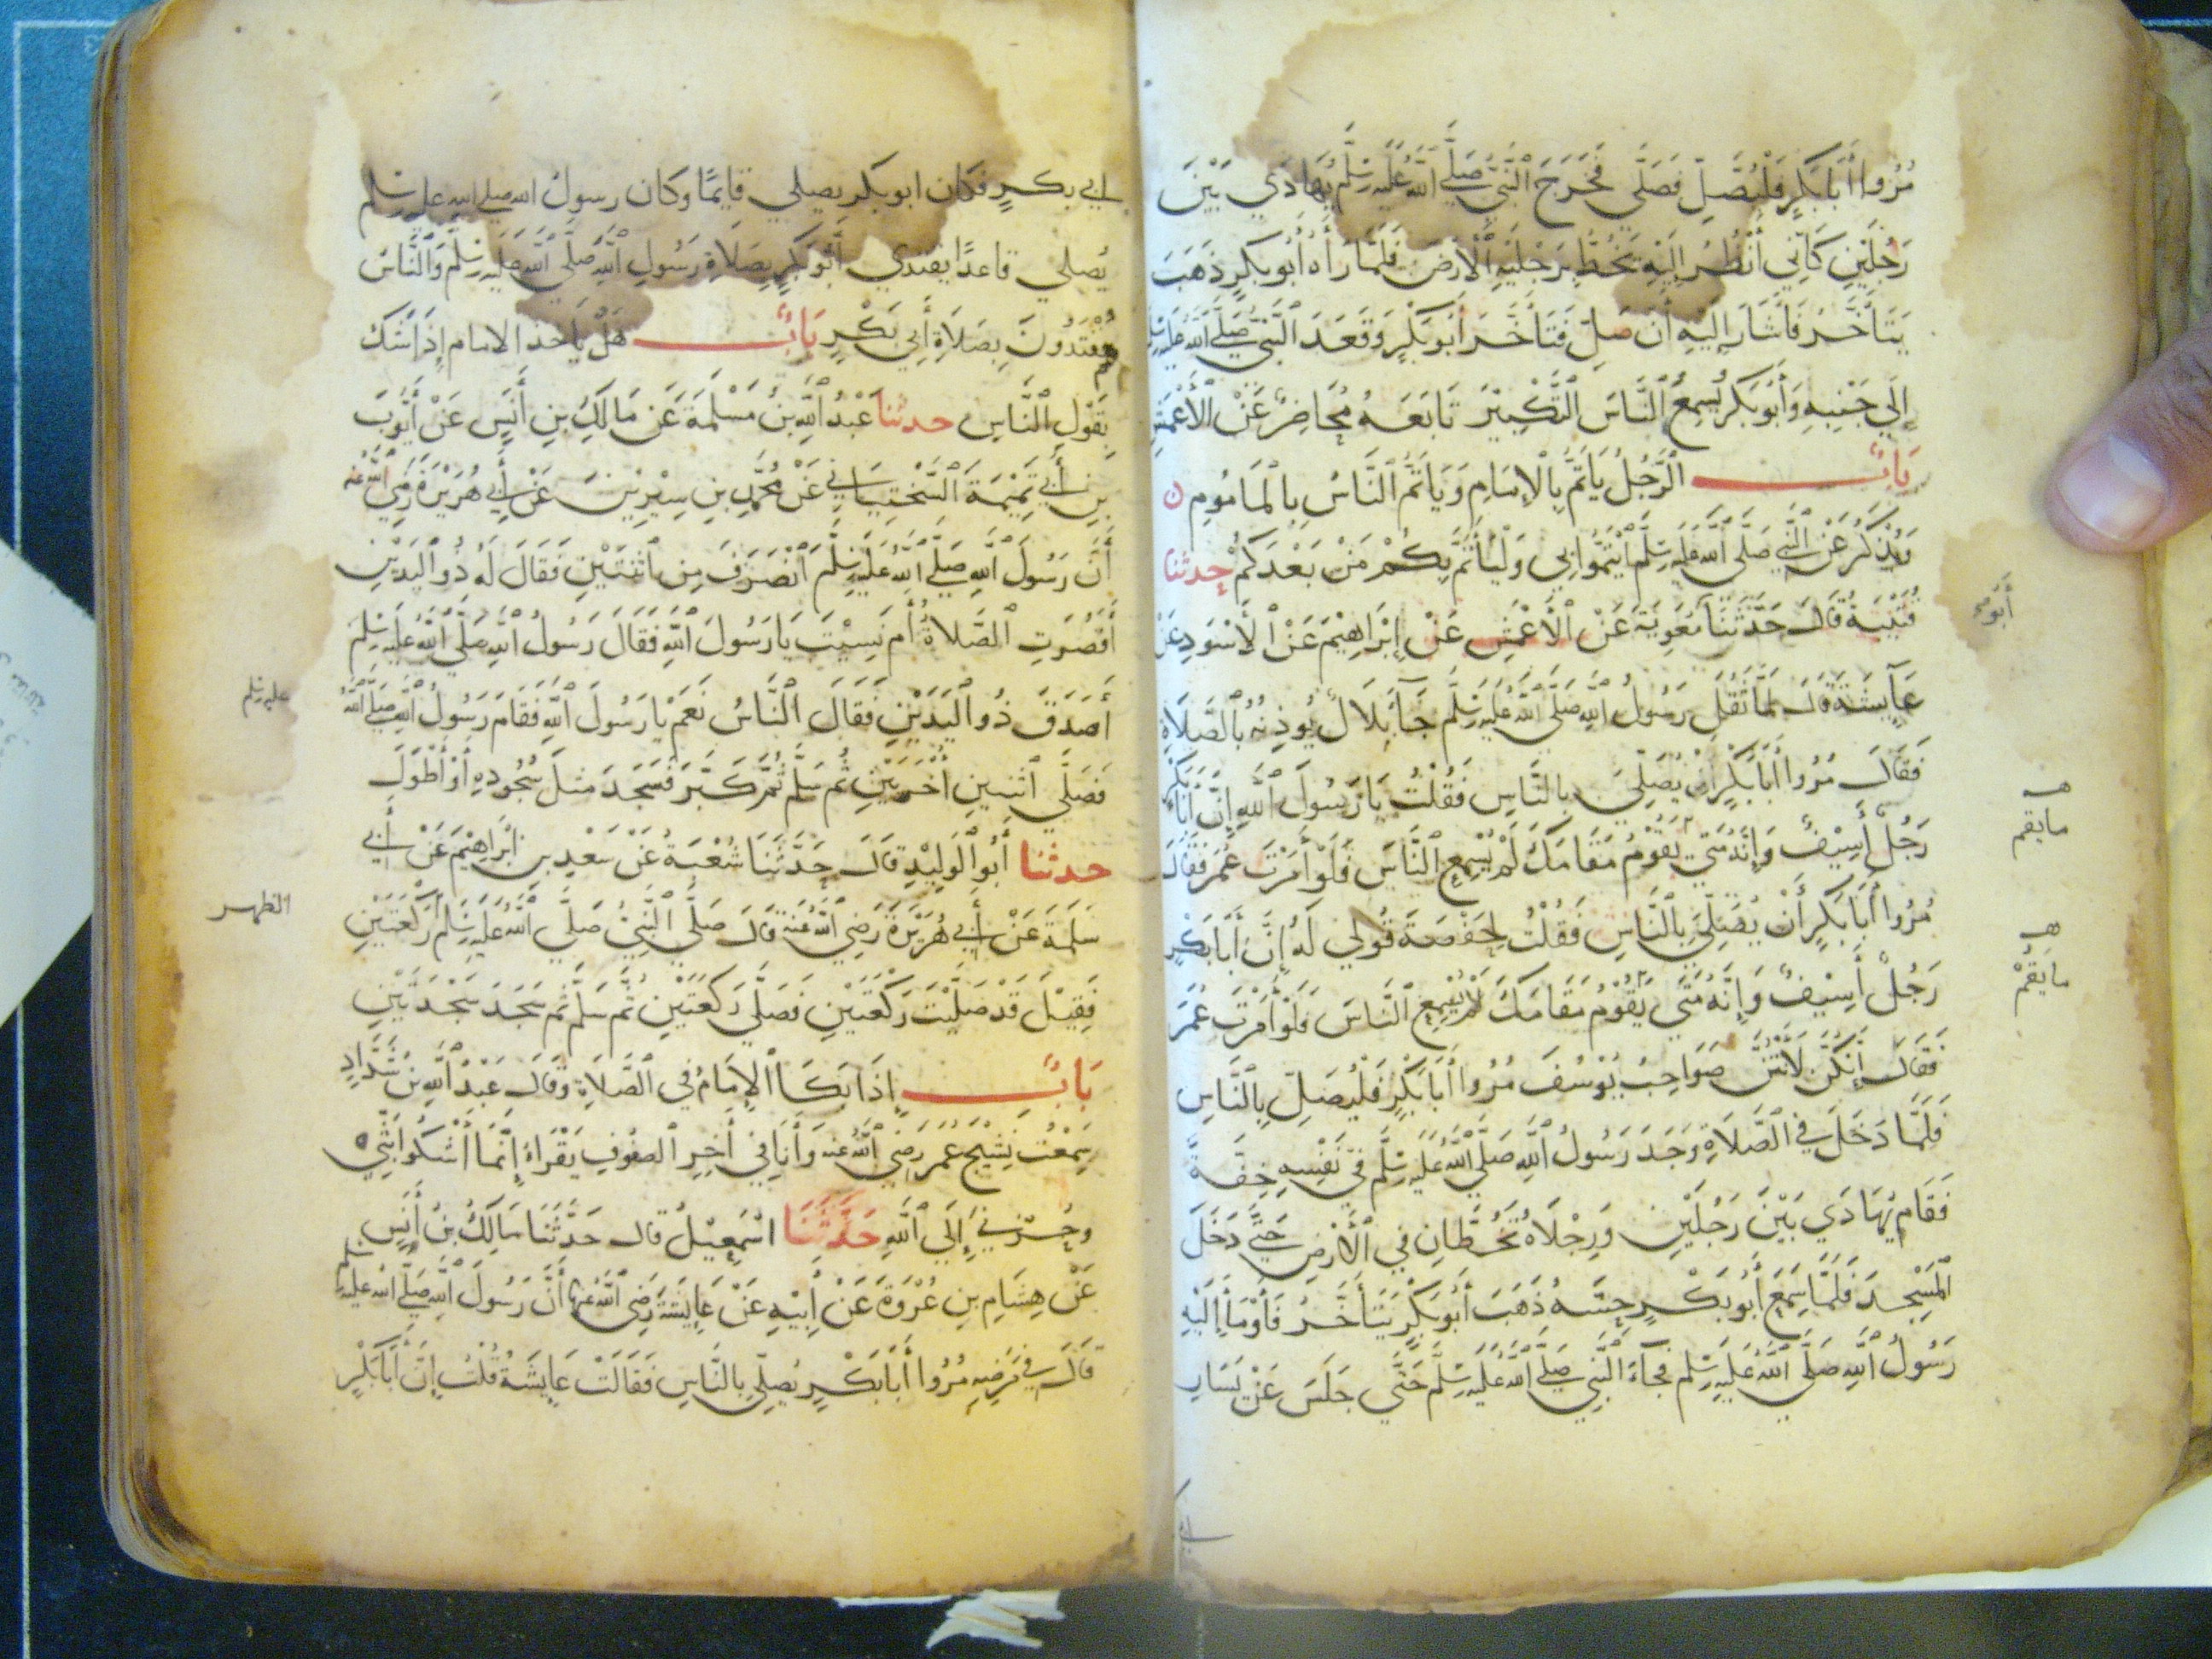 مُرُوا أَبَا بَكْرٍ فَلْيُصَلِّ فَصَلَّى فَخَرَجَ النَّبِيُّ صَلَّى اللهُ عَلَيْهِ وَسَلَّم يُهَادَي بَيْنَ
رَجُلَيْنِ كَأَنِّي أَنْظُرُ إِلَيْهِ يَخُطُّ بِرِجْلَيْهِ الْأَرْضَ فَلَمَّا رَأَاهُ أَبُو بَكْرٍ ذَهَبَ
يَتَأَخَّرُ فَأَشَارَ إِلَيْهِ أَنْ صَلِّ فَتَأَخَّرَ أَبُو بَكْرٍ وَقَعَدَ النَّبِيُّ صَلَّى اللهُ عَلَيْهِ وَسَلَّم
إِلَى جَنْبِهِ وَأَبُو بَكْرٍ يُسْمِعُ النَّاسَ التَّكْبِيْرَ تَابَعَهُ مُحَاضِرٌ عَنْ الْأَعْمَشِ
بَابُ الرَّجُلُ يَأتَمُّ بِالْإِمَامِ وَيَأتَمُّ النَّاسُ بِالْمَأمُومِ ن
وَيُذْكَرُ عَنْ النَّبِيِّ صَلَّى اللهُ عَلَيْهِ وَسَلَّم ائْتَمُّوا بِي وَلْيَأْتَمَّ بِكُمْ مَنْ بَعْدَكُمْ حدثنا
قُتَيْبَةُ قَالَ حَدَّثَنَا مُعَوِيَة عَنْ الْأَعْمَشِ عَنْ إِبْرَاهِيْمَ عَنْ الْأَسْوَدِ عَنْ
أَبُو صح
عَايِشَةَ قَالَ لَمَّا ثَقُلَ رَسُولُ اللهِ صَلَّى اللهُ عَلَيْهِ وَسَلَّم جَآءَ بِلَالٌ يُوذِنُهُ بِالصَّلَاةِ
فَقَالَ مُرُوا أَبَا بَكْرٍ أَنْ يُصَلِّيَ بِالنَّاسِ فَقُلْتُ يَا رَسُولَ اللهِ إِنَّ أَبَا بَكْرٍ
رَجُلٌ أَسِيْفٌ وَإِنَّهُ مَتَى يَقُوْمُ مَقَامَكَ لَمْ يُسْمِعِ النَّاسَ فَلَوْ أَمَرْتَ عُمَرَ فَقَالَ
ما يقم
مُرُوا أَبَا بَكْرٍ أَنْ يُصَلِّيَ بِالنَّاسِ فَقُلْتُ لِحَفْصَةَ قُولِي لَهُ إِنَّ أَبَا بَكْرٍ
رَجُلٌ أَسِيْفٌ وَإِنَّهُ مَتَى يَقُوْمُ مَقَامَكَ لَمْ يُسْمِعِ النَّاسَ فَلَوْ أَمَرْتَ عُمَرَ
ما يَقُمْ
فَقَالَ إِنَّكُنَّ لَأَنْتُنَّ صَوَاحِبُ يُوْسُفَ مُرُوا أَبَا بَكْرٍ فَلْيُصَلِّ بِالنَّاسِ
فَلَمَّا دَخَلَ فِي الصَّلَاةِ وَجَدَ رَسُولُ اللهِ صَلَّى اللهُ عَلَيْهِ وَسَلَّم فِي نَفْسِهِ خِفَّةً
فَقَامَ يُهَادَي بَيْنَ رَجُلَيْنِ وَرِجْلَاهُ تَخُطَّانِ فِي الْأَرْضِ حَتَّى دَخَلَ
الْمَسْجِدَ فَلَمَّا سَمِعَ أَبُو بَكْرٍ حِسَّهُ ذَهَبَ أَبُو بَكْرٍ يَتَأَخَّرُ فَأَوْمَأَ إِلَيْهِ
رَسُولُ اللهِ صَلَّى اللهُ عَلَيْهِ وَسَلَّم فَجَآءَ النَّبِي صَلَّى اللهُ عَلَيْهِ وَسَلَّم حَتَّى جَلَسَ عَنْ يَسَارِ
ابي
ابي بكرٍ فكان ابو بكر يصلي قايمًا وكان رسول الله صلى الله عليه وسلم
يُصلي قاعدًا يقتدي أَبُو بَكْرٍ بِصَلَاةِ رَسُولِ اللهِ صَلَّى اللهُ عَلَيْهِ وَسَلَّمَ وَالنَّاسُ
مُقْتَدُونَ بِصَلَاةِ أَبِي بَكْرٍ بَابٌ هَلْ يَأخذ الإمام إِذَا شَكَ
بِقَوْلِ النَّاسِ حدثنا عَبْدُ اللهِ بنُ مَسْلَمَةَ عَن مَالِكِ بنِ أَنَسٍ عَنْ أَيُّوبَ
بنِ أَبِي تَمِيْمَةَ السَّخْتِيَانِي عَنْ مُحَمَّدِ بنِ سِيْرِيْنَ عَنْ أَبِي هُرَيْرَةَ رَضِيَ اللهُ عَنه
أَنَّ رَسُولَ اللهِ صَلَّى اللهُ عَلَيْهِ وَسَلَّم انْصَرَفَ مِن اثْنَتَيْنِ فَقَالَ لَهُ ذُو الْيَدَيْنِ
أَقُصِرَتِ الصَّلَاةُ أَم نَسِيْتَ يَا رَسُولَ اللهِ فَقَالَ رَسُولُ اللهِ صَلَّى اللهُ عَلَيْهِ وَسَلَّمَ
أَصَدَقَ ذُو الْيَدَيْنِ فَقَالَ النَّاسُ نَعَمْ يَا رَسُولَ اللهِ فَقَامَ رَسُولُ اللهِ صَلَّى اللهُ
عليه وسلم
فَصَلَّى اثْنَتَيْنِ أُخْرَيَيْنِ ثُم سَلَّمَ ثُمَّ كَبَّرَ فَسَجَدَ مِثْلَ سُجُودِهِ أَوْ أَطْوَلَ
حدثنا أَبُو الْوَلِيْدِ قَالَ حَدَّثَنَا شُعْبَةُ عَنْ سَعْدِ بن إِبْرَاهِيْمَ عَنْ أَبِي
سَلَمَةَ عَنْ أَبِي هُرَيْرَةَ رَضِيَ اللهُ عَنه قَالَ صَلَّى النَّبِيُّ صَلَّى اللهُ عَلَيْهِ وَسَلَّم رَكْعَتَيْنِ
الظهر
فَقِيْلَ قَدْ صَلَّيْتَ رَكْعَتَيْنِ فَصَلَّى رَكْعَتَيْنِ ثُمَّ سَلَّمَ ثُم سَجَدَ سَجْدَتَيْنِ
بَابٌ إِذَا بَكَا الْإِمَامُ فِي الصَّلَاةِ وَقَالَ عَبْدُ اللهِ بنُ شَدَّادٍ
سَمِعْتُ نَشِيْجَ عُمَرَ رَضِيَ اللهُ عنه وَأَنَا فِي أَخِرِ الصُفُوفِ يَقْرَاءُ إِنَّمَا أَشْكُوا بَثِّي
وَحُزْنِي إِلَى اللهِ حَدَّثَنَا اسْمَعِيْلُ قَالَ حَدَّثَنَا مَالِكُ بنُ أَنَسٍ
عَنْ هِشَامِ بنِ عُرْوَةَ عَنْ أَبِيْهِ عَنْ عَايِشَةَ رَضِيَ اللهُ عَنْهَا أَنَّ رَسُولَ اللهِ صَلَّى اللهُ عَلَيْهِ وسلم
قَالَ فِي مَرَضِهِ مُرُوا أَبَا بَكْرٍ يُصَلِّي بِالنَّاسِ فَقَالَتْ عَايِشَةُ قُلْتُ إِنَّ أَبَا بَكْرٍ